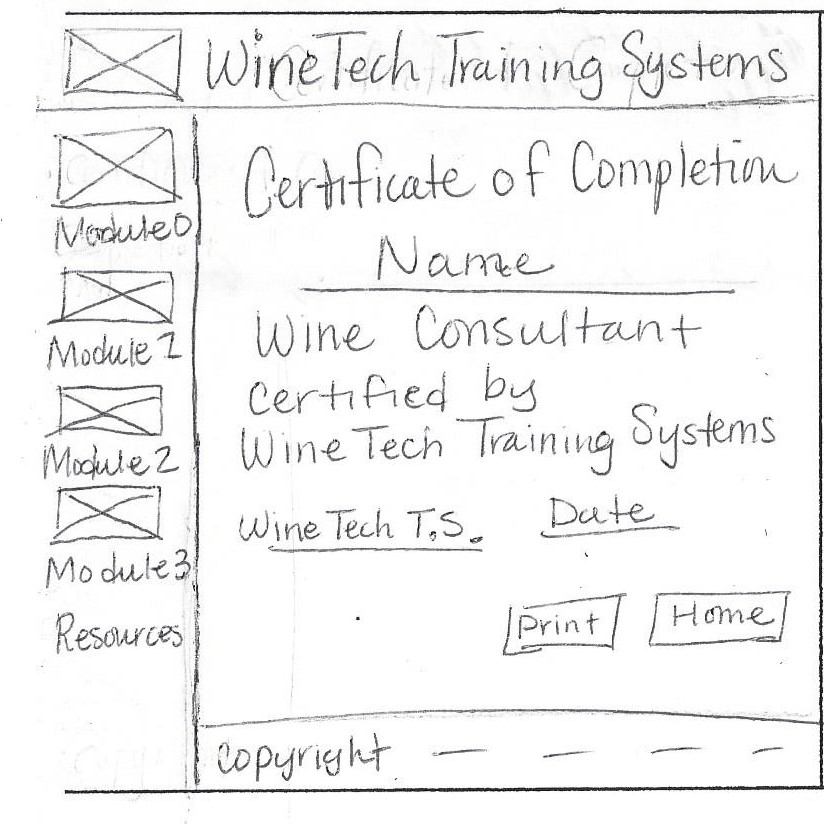 WineTech Training Systems
Module 0
Module 1
Module 2
Module 3
Resources
Certificate of Completion
Name
Wine Consultant
certified by
WineTech Training Systems
WineTech T.S.
Date
Print
Home
copyright